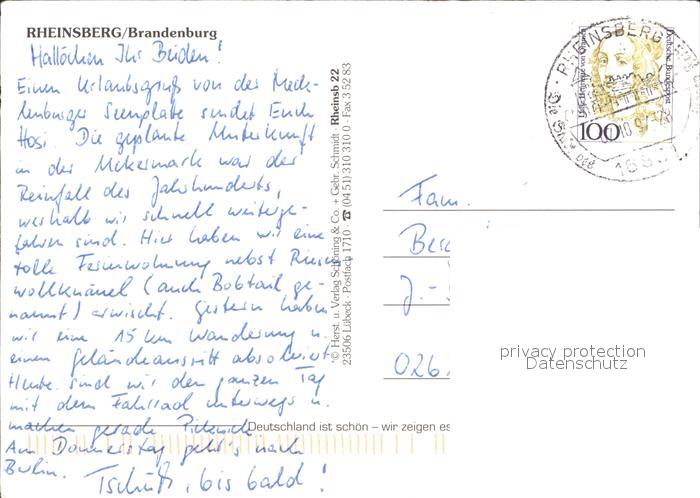 RHEINSBERG/Brandenburg
Hallöchen Ihr Beiden!
Einen Urlaubsgruß von der Meck-
lenburger Seenplatte sendet Euch
Hosi. Die geplante Unterkunft
in der Uckermark war der
Reinfall des Jahrhunderts,
weshalb wir schnell weiterge-
fahren sind. Hier haben wir eine
tolle Ferienwohnung nebst Riesen
wollknäuel (auch Bobtail ge-
nannt) erwischt. Gestern haben
wir eine 15 km Wanderung u.
einen Geländeausritt absolviert
Heute sind wir den ganzen Tag
mit dem Fahrrad unterwegs u.
machen gerade Picknick
Am Donnerstag geht's nach
Berlin.
Tschüß, bis bald!
© Herst. u. Verlag Schöning & Co. + Gebr. Schmidt · Rheinsb 22
23506 Lübeck · Postfach 1710 · ☎ (04 51) 310 310 0 · Fax 3 52 83
Deutschland ist schön – wir zeigen es
RHEINSBERG
Deutsche Bundespost
100
Fam.
J.-
026
privacy protection
Datenschutz